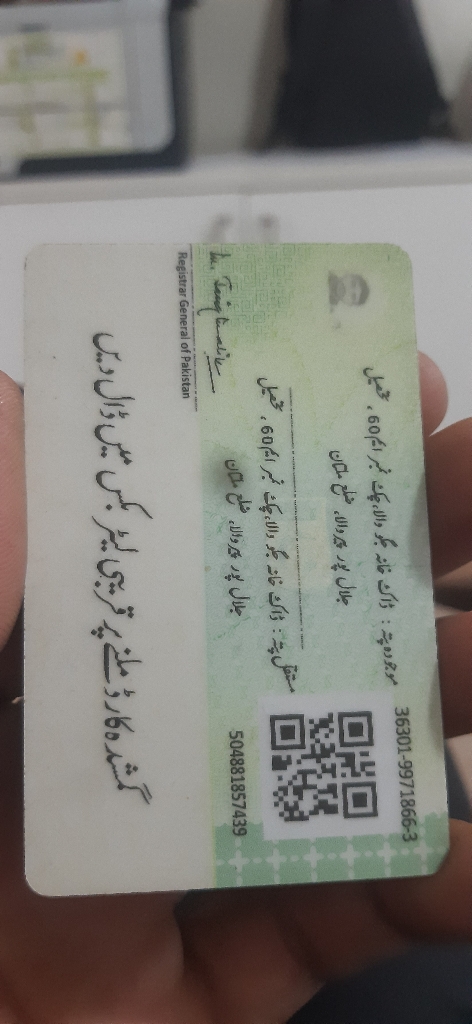 36301-9971866-3
موجودہ پتہ : ڈاک خانہ جگو والا، چک نمبر ایم 60 ، تحصیل
جلال پور پیر والا، ضلع ملتان
مستقل پتہ : ڈاک خانہ جگو والا، چک نمبر ایم 60 ، تحصیل
جلال پور پیر والا، ضلع ملتان
504881857439
Registrar General of Pakistan
گمشدہ کارڈ ملنے پر قریبی لیٹر بکس میں ڈال دیں